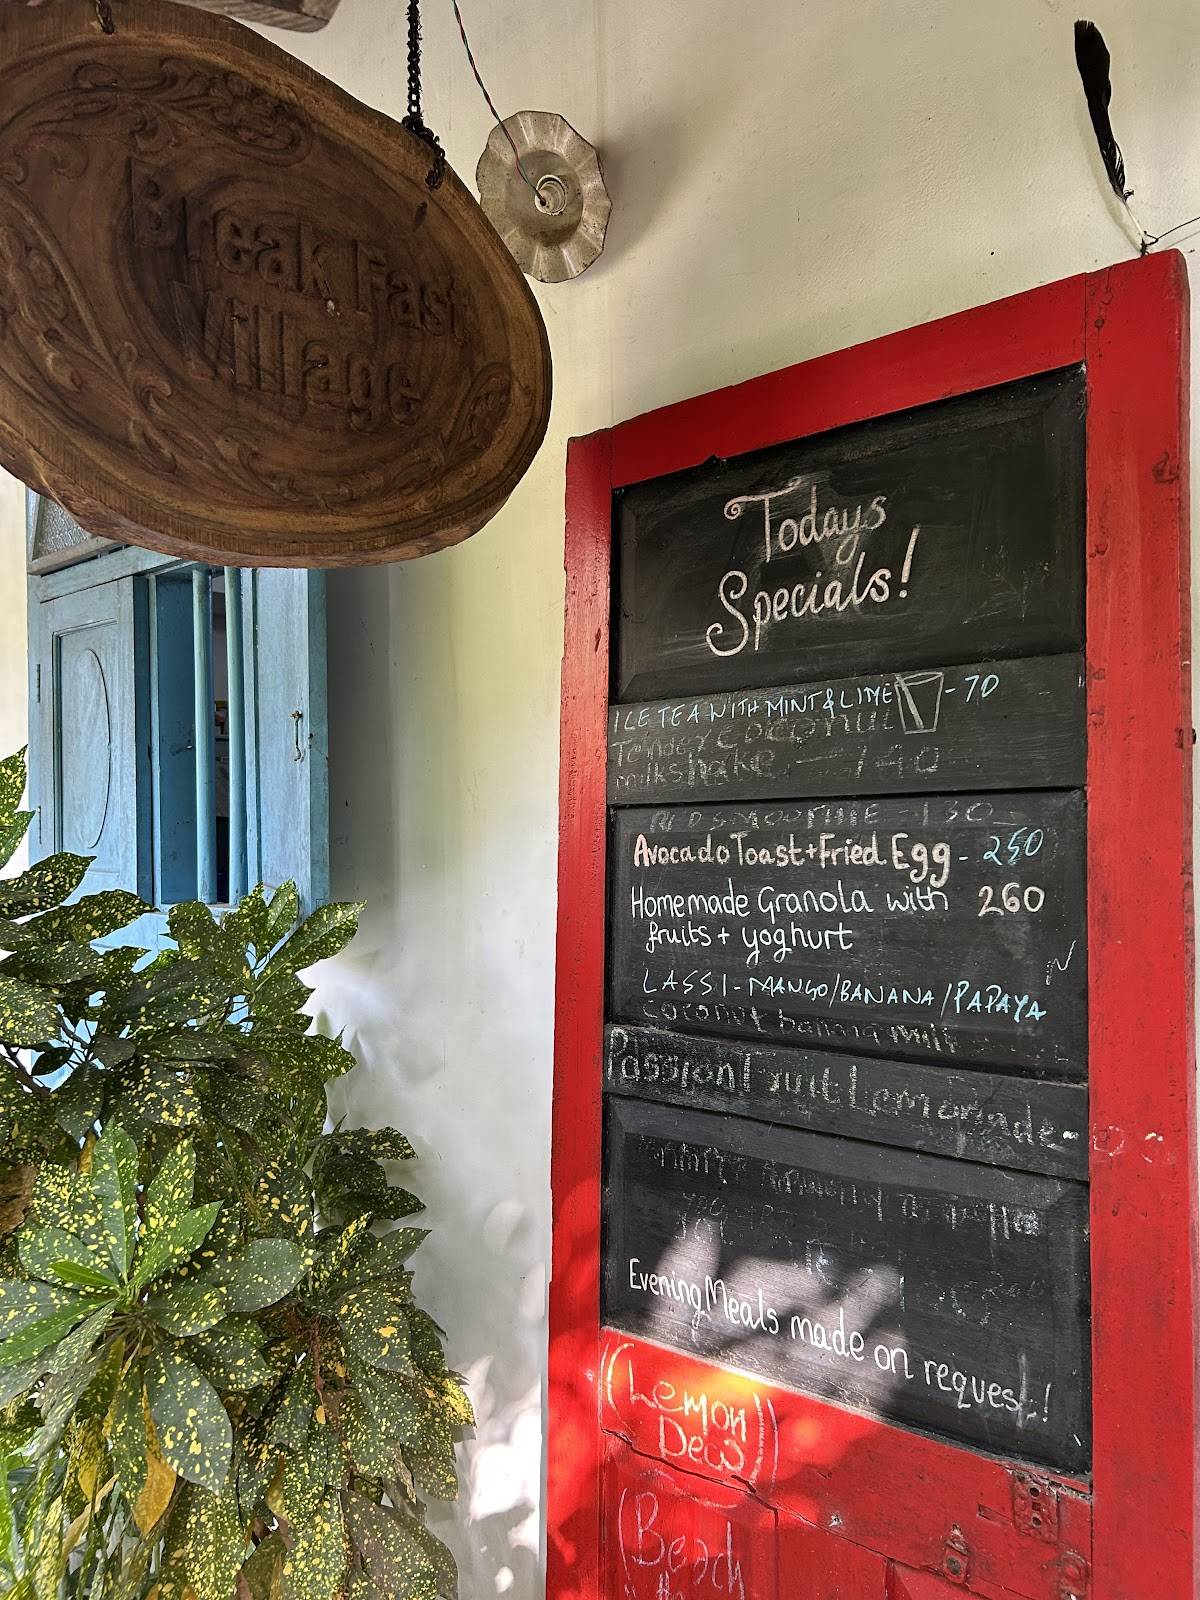 Break Fast
Village
Todays
Specials!
ICE TEA WITH MINT & LIME - 70
coconut
milkshake - 140
SMOOTHIE - 130
Avocado Toast + Fried Egg - 250
Homemade Granola with 260
fruits + yoghurt
LASSI - MANGO/BANANA/PAPAYA
Coconut banana milk
Passion Fruit Lemonade -
Evening Meals made on request!
(Lemon
Dew)
(Beach